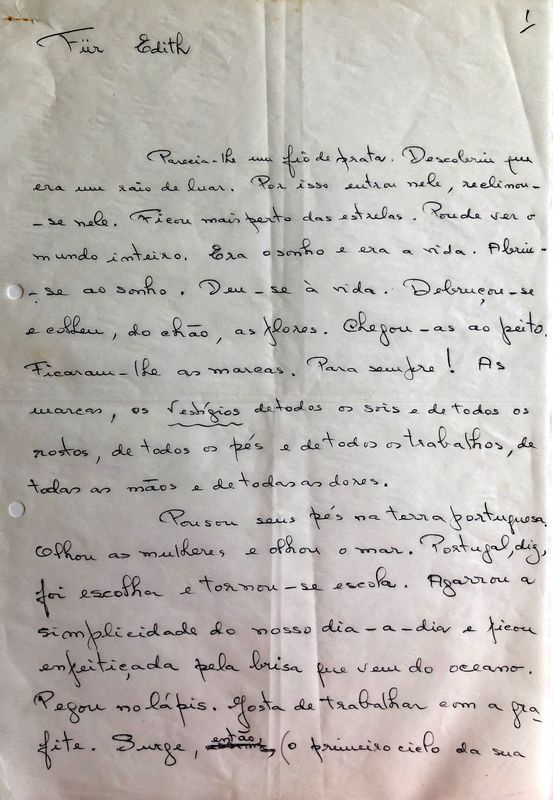 1
Für Edith
Parecia-lhe um fio de prata. Descobriu que
era um raio de luar. Por isso entrou nele, reclinou-
-se nele. Ficou mais perto das estrelas. Poude ver o
mundo inteiro. Era o sonho e era a vida. Abriu-
-se ao sonho. Deu-se à vida. Debruçou-se
e colheu, do chão, as flores. Chegou-as ao peito.
Ficaram-lhe as marcas. Para sempre! As
marcas, os vestígios de todos os sois e de todos os
rostos, de todos os pés e de todos os trabalhos, de
todas as mãos e de todas as dores.
Pousou seus pés na terra portuguesa,
olhou as mulheres e olhou o mar. Portugal, diz,
foi escolha e tornou-se escola. Agarrou a
simplicidade do nosso dia-a-dia e ficou
enfeitiçada pela brisa que vem do oceano.
Pegou no lápis. Gosta de trabalhar com a gra-
fite. Surge, então, (o primeiro ciclo da sua